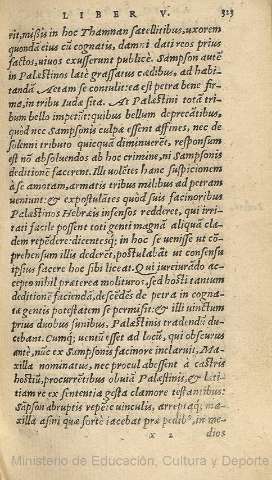 LIBER V. 323
rit, missis in hoc Thamnan satellitibus, uxorem
quondā eius cū cognatis, damni dati reos prius
factos, uiuos exusserunt publicè. Sampson autē
in Palæstinos late grassatus cædibus, ad habi
tandā Aetam se contulit: ea est petra bene fir-
ma, in tribu Iudæ sita. At Palæstini totā tri-
bum bello impetūt: quibus bellum deprecātibus,
quòd nec Sampsonis culpæ essent affines, nec de
solenni tributo quicquā diminuerēt, responsum
est nō absoluendos ab hoc crimine, ni Sampsonis
deditionē facerent. Illi uolētes hanc suspicionem
à se amotam, armatis tribus milibus ad petram
ueniunt: & expostulātes quòd suis facinoribus
Palæstinos Hebræis infensos redderet, qui irri-
tati facile possent toti genti magnā aliquā cla-
dem repēdere: dicentesq; in hoc se uenisse ut cō
prehensum illis dederēt, postulabāt ut consensu
ipsius facere hoc sibi liceat. Qui iureiurādo ac
cepto nihil præterea molituros, sed hosti tantum
deditionē faciendā, descēdēs de petra in cognatæ
gentis potestatem se permisit: & illi uinctum
prius duobus funibus, Palæstinis tradendū du-
cebant. Cumq; ueniū esset ad locū, qui obscurus
antè, nūc ex Sampsonis facinore inclaruit, Ma-
xilla nominatus, nec procul abessent à castris
hostiū, procurrētibus obuiā Palæstinis, & lati-
tiam re ex sententia gesta clamore testantibus:
Sāpson abruptis repētè uinculis, arreptaq; ma-
xilla asini quæ fortè iacebat præ pedib', in me-
x 2 dios
Ministerio de Educación, Cultura y Deporte